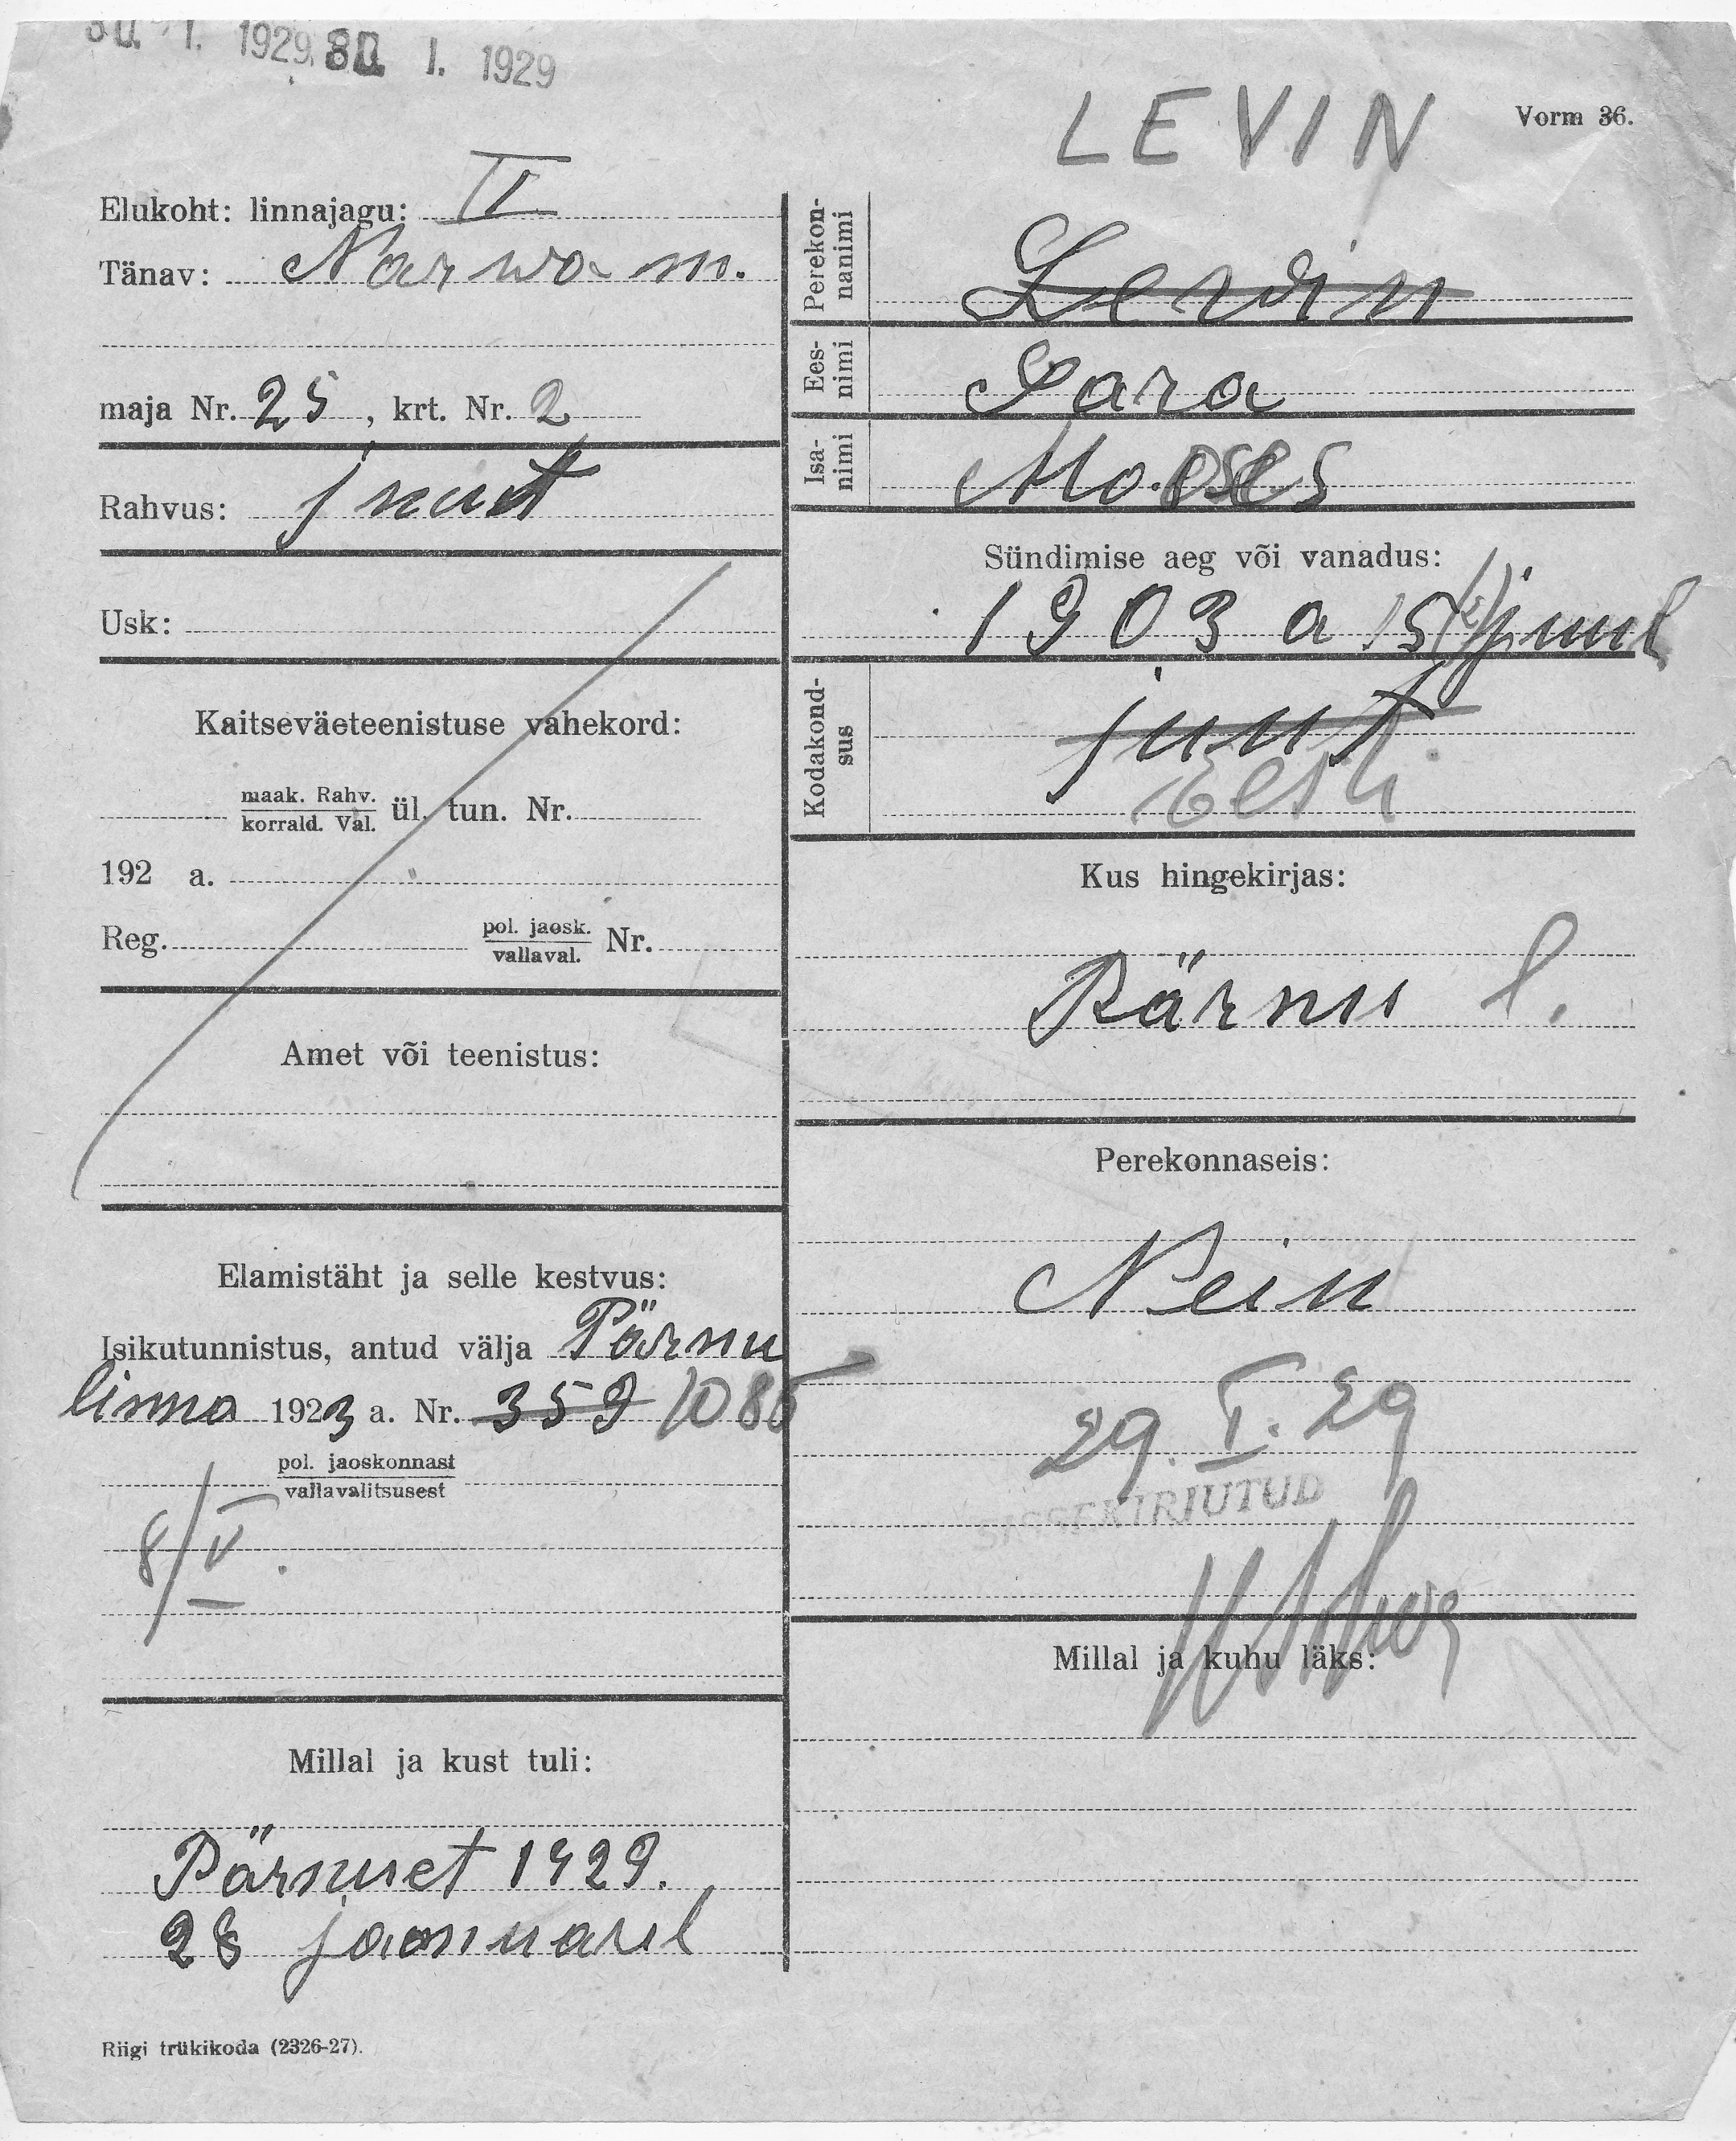 30. 1. 1929 30. 1. 1929
LEVIN
Vorm 36.
Elukoht: linnajagu: II
Tänav: Narwa m.
maja Nr. 25, krt. Nr. 2
Rahvus: juut
Usk:
Kaitseväeteenistuse vahekord:
maak. Rahv.
korrald. Val. ül. tun. Nr.
192 a.
Reg. pol. jaosk.
vallaval. Nr.
Amet või teenistus:
Elamistäht ja selle kestvus:
Isikutunnistus, antud välja Pärnu
linna 1923 a. Nr. 359 1086
pol. jaoskonnast
vallavalitsusest
8/V.
Millal ja kust tuli:
Pärnust 1929.
28 jaanuaril
Riigi trükikoda (2326-27).
Perekon-
nanimi
Levin
Ees-
nimi
Sara
Isa-
nimi
Mooses
Sündimise aeg või vanadus:
1903 a 15 juunil
Kodakond-
sus
juut
Eesti
Kus hingekirjas:
Pärnu l.
Perekonnaseis:
Nein
29. I. 29
SISSEKIRJUTUD
Millal ja kuhu läks: